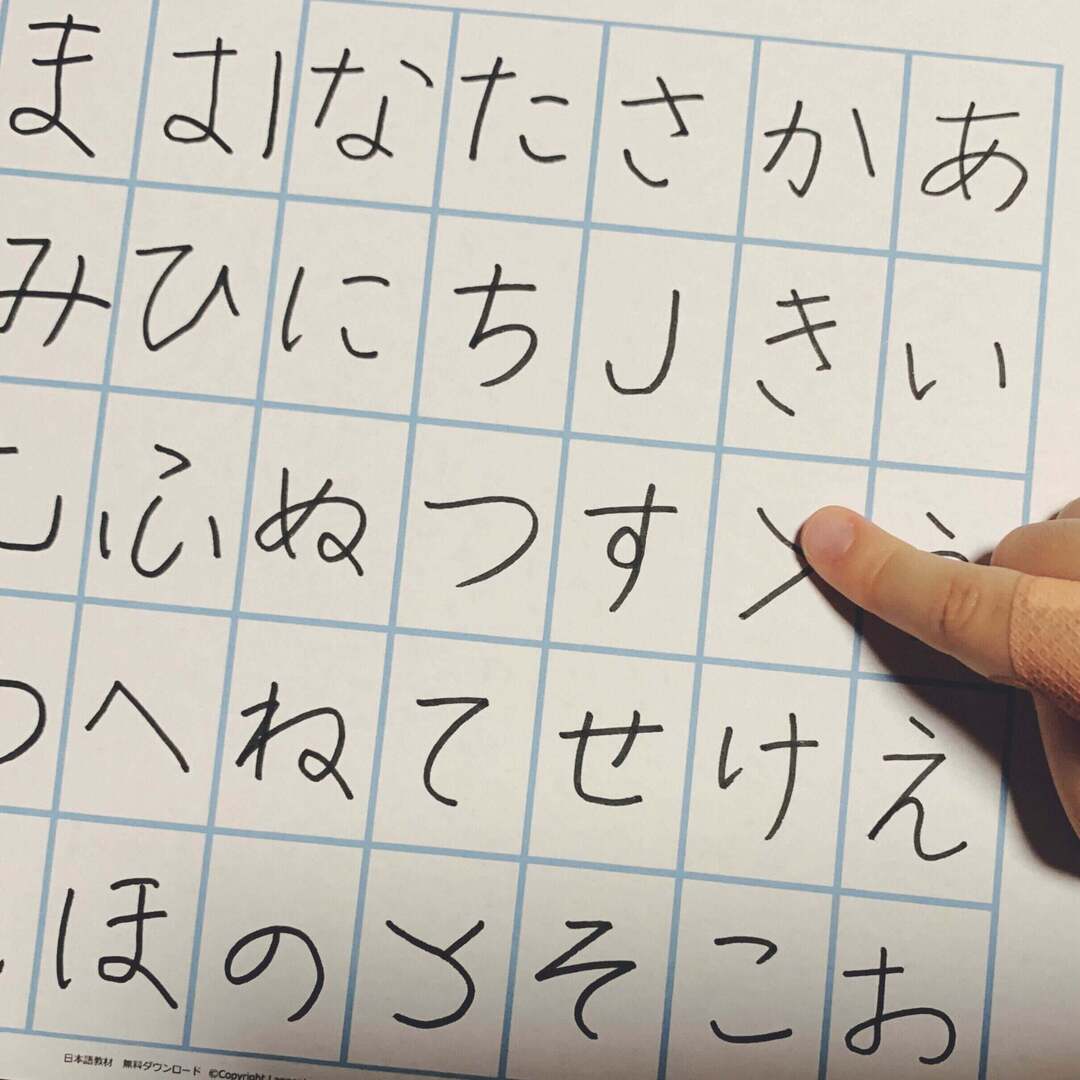 あいえお
かきけこ
さしすせそ
たちつてと
なにぬねの
はひふへほ
まみ
日本語教材　無料ダウンロード　©Copyright